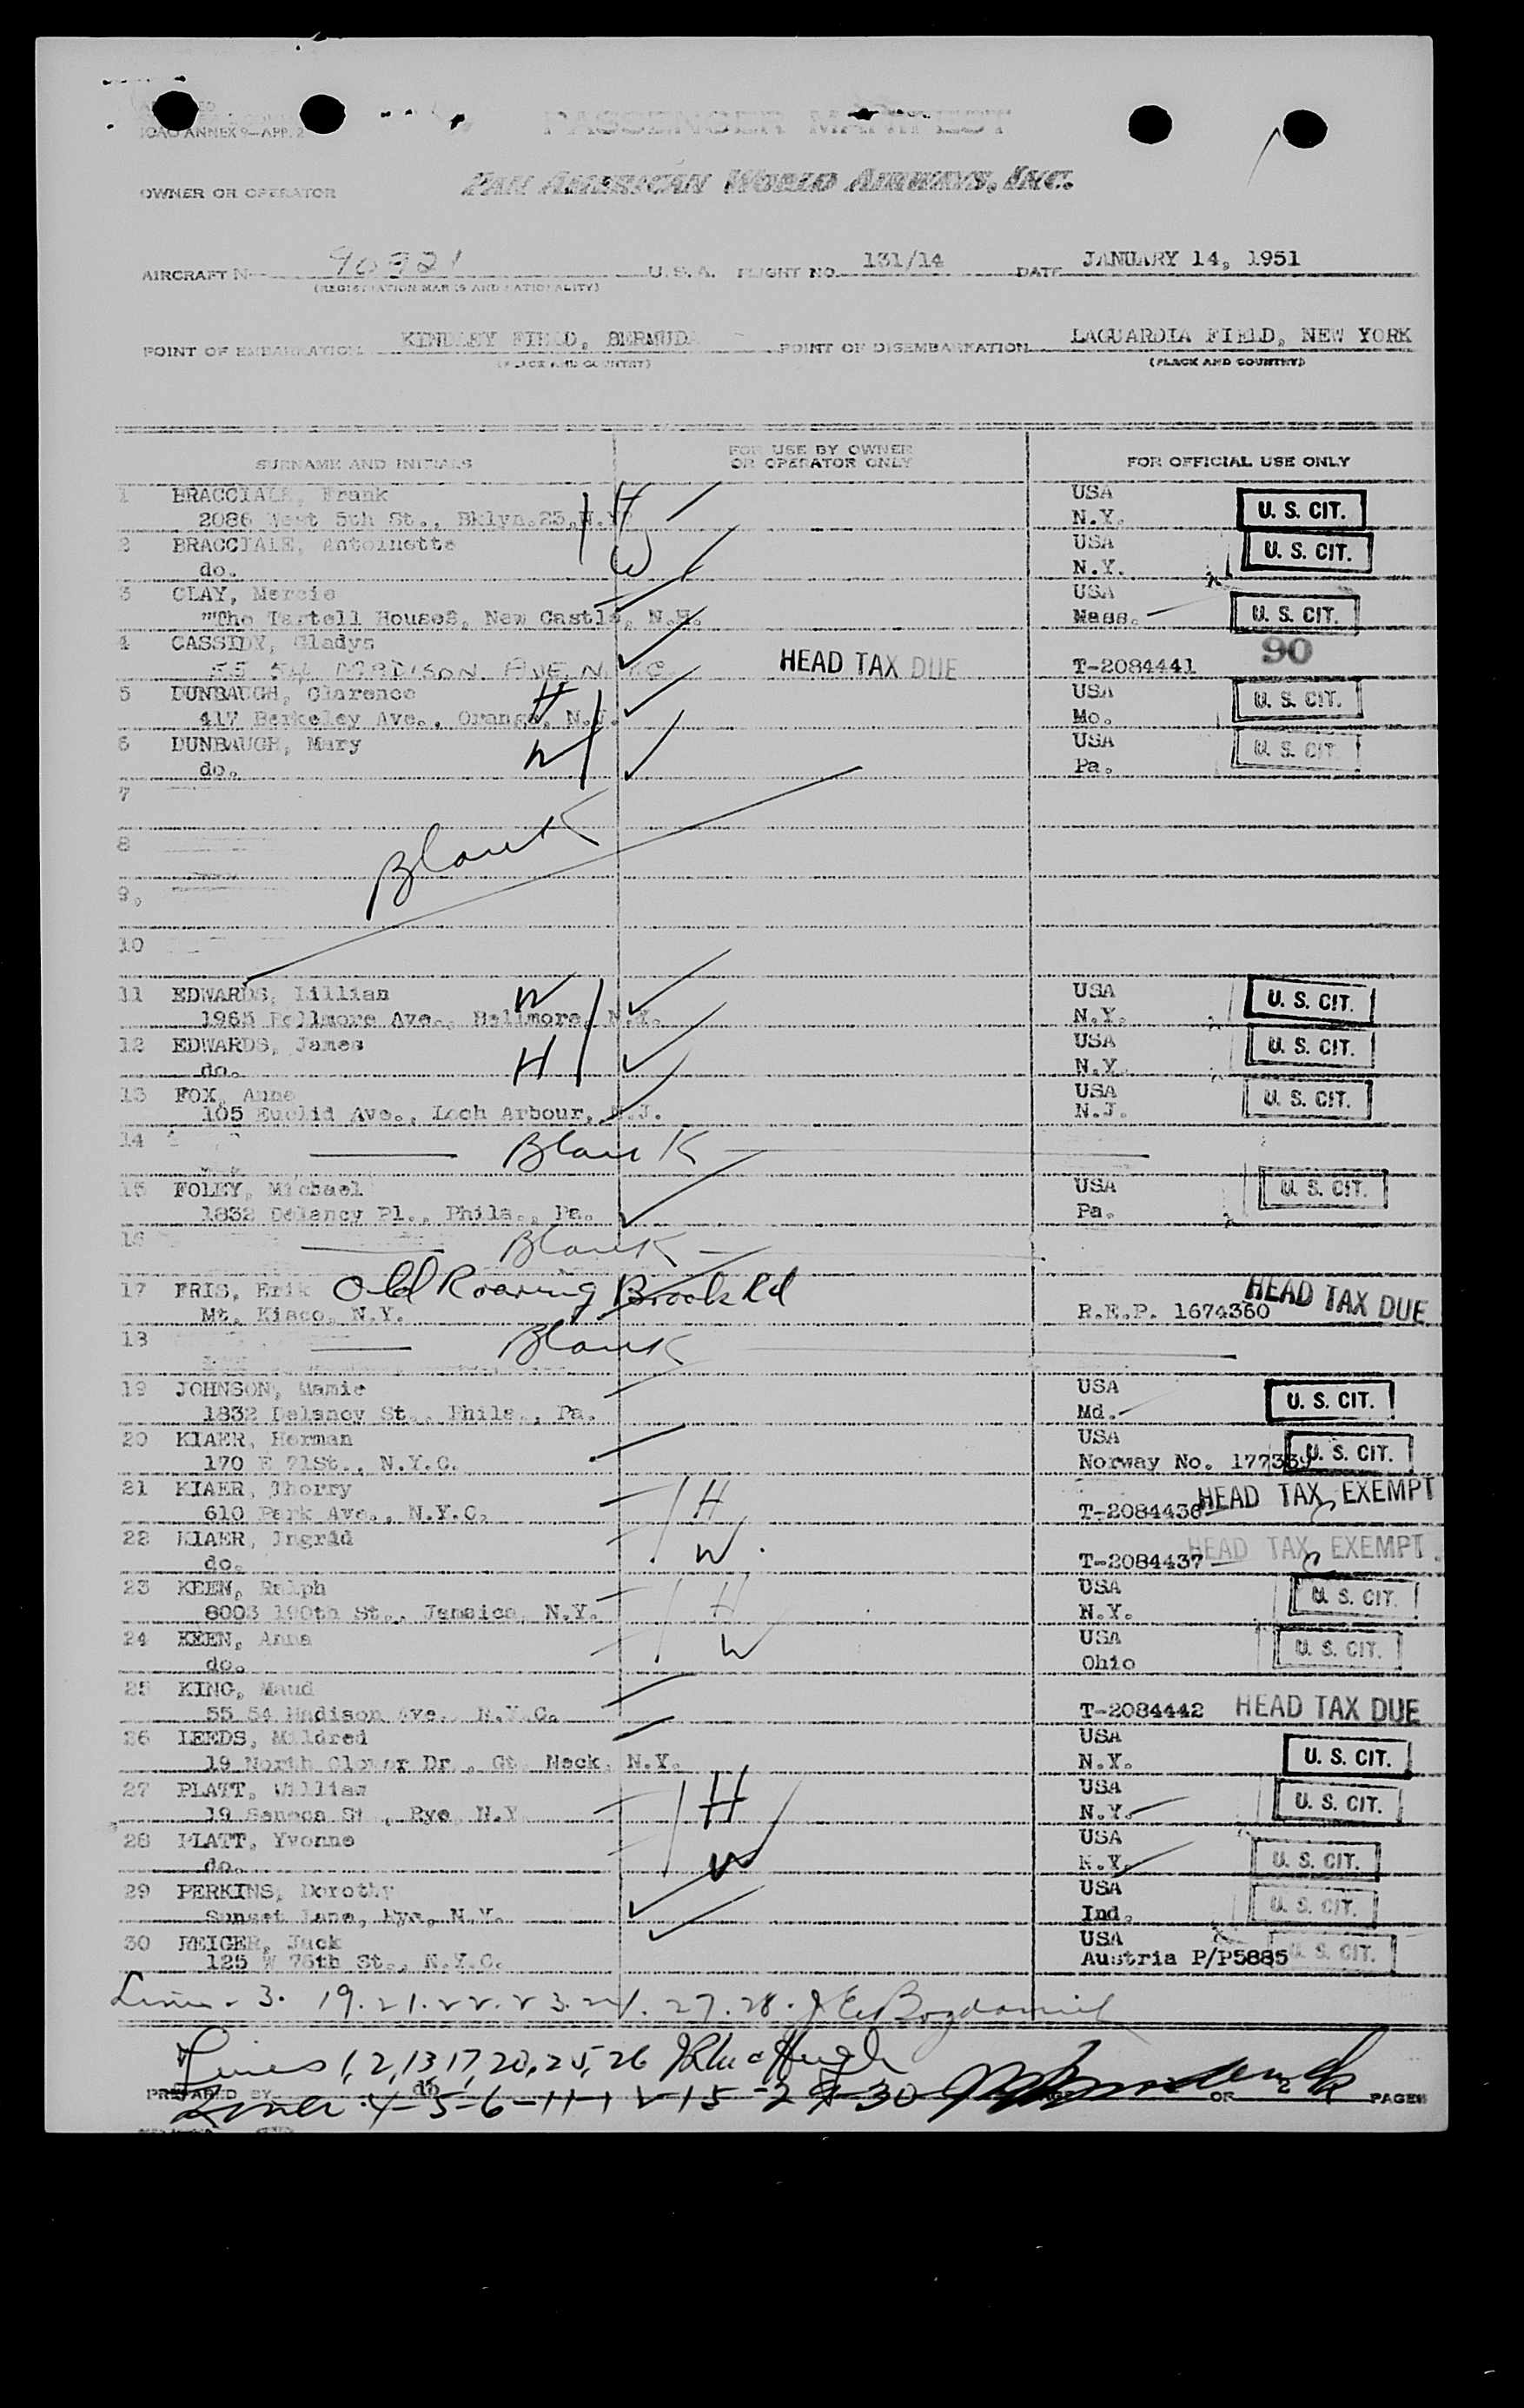 ICAO ANNEX 9—APP. 2
PASSENGER MANIFEST
OWNER OR OPERATOR PAN AMERICAN WORLD AIRWAYS, INC.
AIRCRAFT 90921 U. S. A. FLIGHT NO. 131/14 DATE JANUARY 14, 1951
(REGISTRATION MARKS AND NATIONALITY)
POINT OF EMBARKATION KINDLEY FIELD, BERMUDA POINT OF DISEMBARKATION LAGUARDIA FIELD, NEW YORK
(PLACE AND COUNTRY) (PLACE AND COUNTRY)
SURNAME AND INITIALS FOR USE BY OWNER OR OPERATOR ONLY FOR OFFICIAL USE ONLY
1 BRACCIALE, Frank H USA U. S. CIT.
2086 West 5th St., Bklyn.23,N.Y. N.Y.
2 BRACCIALE, Antoinette W USA U. S. CIT.
do. N.Y.
3 CLAY, Mercie USA
"The Tartell House", New Castle, N.H. Mass. U. S. CIT.
4 CASSIDY, Gladys 90
55 54 MADISON AVE. N.Y.C. HEAD TAX DUE T-2084441
5 DUNBAUGH, Clarence H USA U. S. CIT.
417 Berkeley Ave., Orange, N.J. Mo.
6 DUNBAUGH, Mary W USA U. S. CIT.
do. Pa.
7
8 Blank
9.
10
11 EDWARDS, Lillian W USA U. S. CIT.
1965 Bellmore Ave., Bellmore, N.Y. N.Y.
12 EDWARDS, James H USA U. S. CIT.
do. N.Y.
13 FOX, Anne USA U. S. CIT.
105 Euclid Ave., Loch Arbour, N.J. N.J.
14 Blank
15 FOLEY, Michael USA U. S. CIT.
1832 Delancy Pl., Phila., Pa. Pa.
16 Blank
17 FRIS, Erik Old Roaring Brook Rd HEAD TAX DUE
Mt. Kisco, N.Y. R.E.P. 1674360
18 Blank
19 JOHNSON, Mamie USA U. S. CIT.
1832 Delancy St., Phila., Pa. Md.
20 KIAER, Herman USA U. S. CIT.
170 E 71St., N.Y.C. Norway No. 177359
21 KIAER, Thorry H HEAD TAX EXEMPT
610 Park Ave., N.Y.C. T-2084436
22 KIAER, Ingrid W HEAD TAX EXEMPT
do. T-2084437
23 KEEN, Ralph H USA U. S. CIT.
8003 190th St., Jamaica, N.Y. N.Y.
24 KEEN, Anna W USA U. S. CIT.
do. Ohio
25 KING, Maud
55 54 Madison Ave. N.Y.C. T-2084442 HEAD TAX DUE
26 LEEDS, Mildred USA
19 North Clover Dr., Gt. Neck, N.Y. N.Y. U. S. CIT.
27 PLATT, William H USA U. S. CIT.
19 Seneca St., Rye, N.Y. N.Y.
28 PLATT, Yvonne W USA
do. N.Y. U. S. CIT.
29 PERKINS, Dorothy USA U. S. CIT.
Sunset Lane, Rye, N.Y. Ind.
30 REIGER, Jack USA U. S. CIT.
125 W 76th St., N.Y.C. Austria P/P5885
Lines - 3. 19. 21. 22. 23. 24. 27. 28.
Lines 1, 2, 13, 17, 20, 25, 26
PREPARED BY db OF 2 PAGES
Lines 4-5-6-11-12-15-29-30